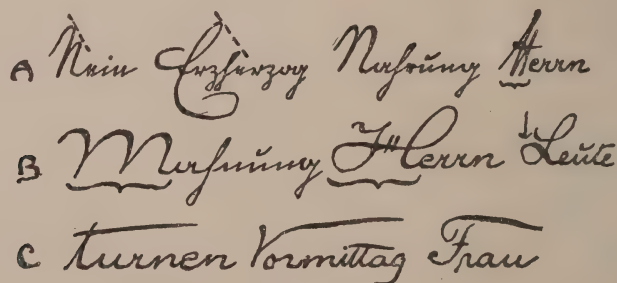 A Nein Erzherzog Nahrung Herrn
B Mahnung Herrn Leute
C turnen Vormittag Frau